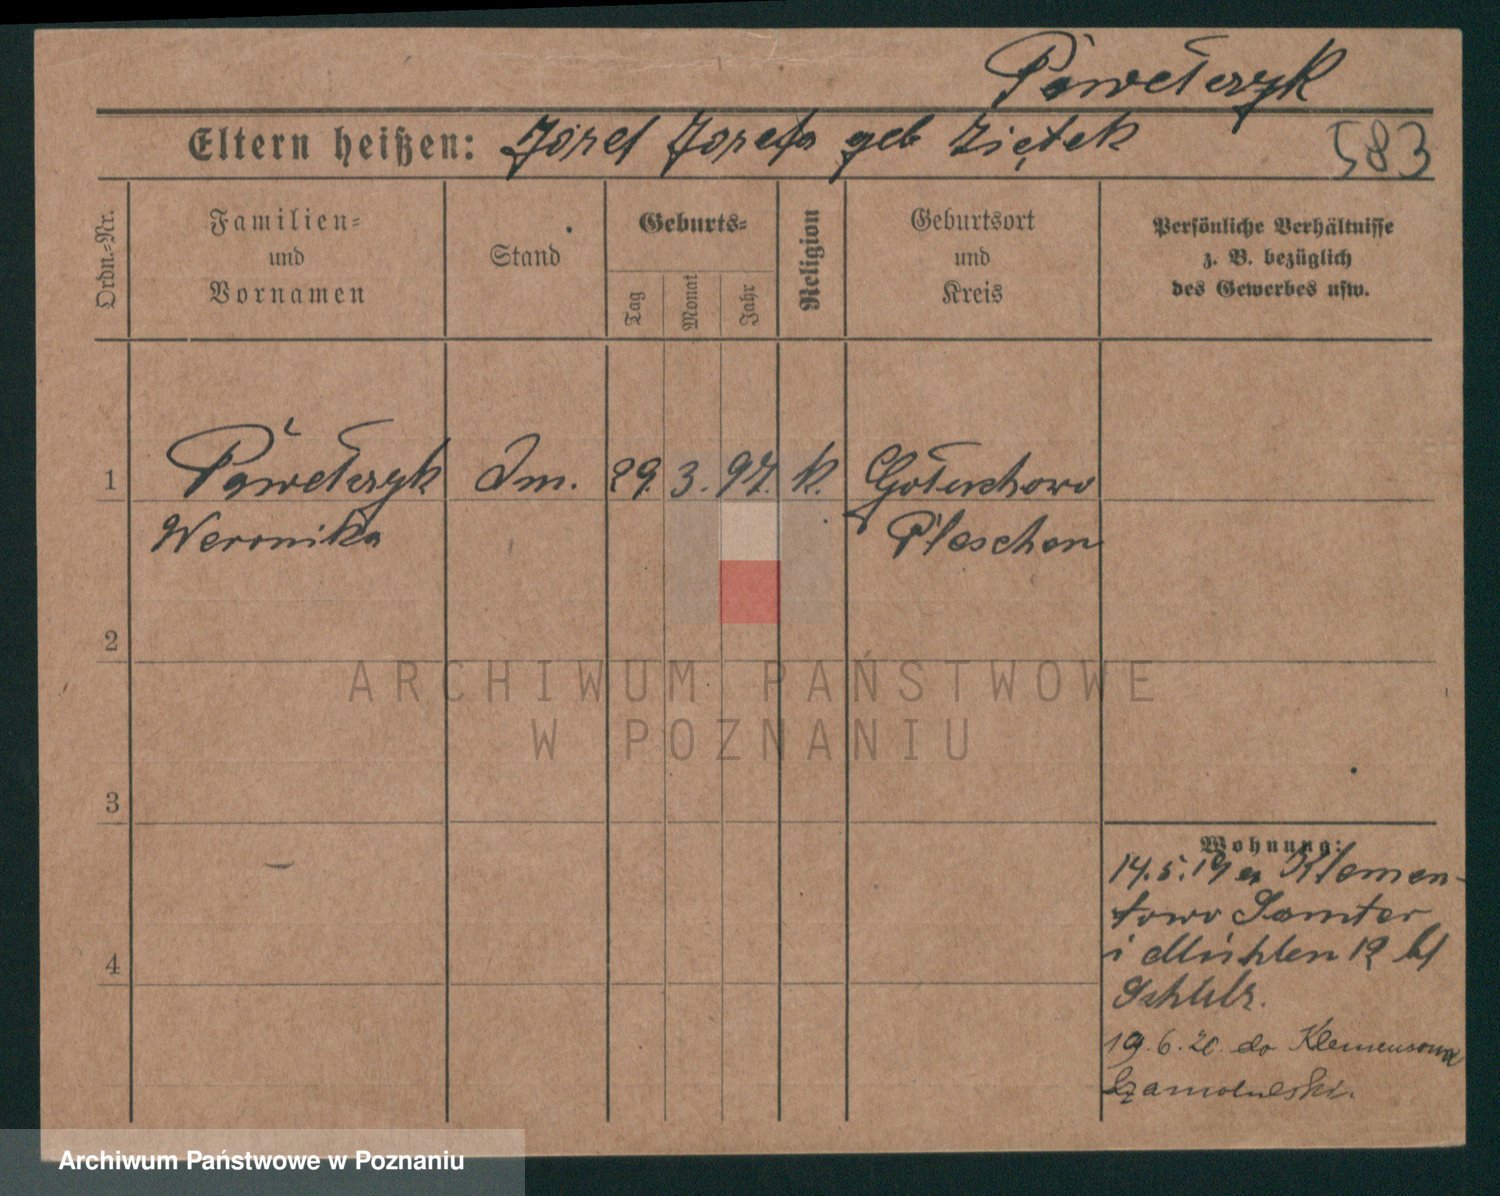 Pawełczyk
Eltern heißen: Józef Jozefa geb Ziętek
583
Ordn.-Nr.
Familien-
und
Vornamen
Stand
Geburts-
Tag
Monat
Jahr
Religion
Geburtsort
und
Kreis
Persönliche Verhältnisse
z. B. bezüglich
des Gewerbes usw.
1
Pawełczyk
Weronika
29. 3. 97. k.
Gołuchowo
Pleschen
2
3
4
Wohnung:
14.5.19 Klemen-
towo Samter
i Mühlen 12 bl
Schulz.
19.6.20. do
ARCHIWUM PAŃSTWOWE
W POZNANIU
Archiwum Państwowe w Poznaniu